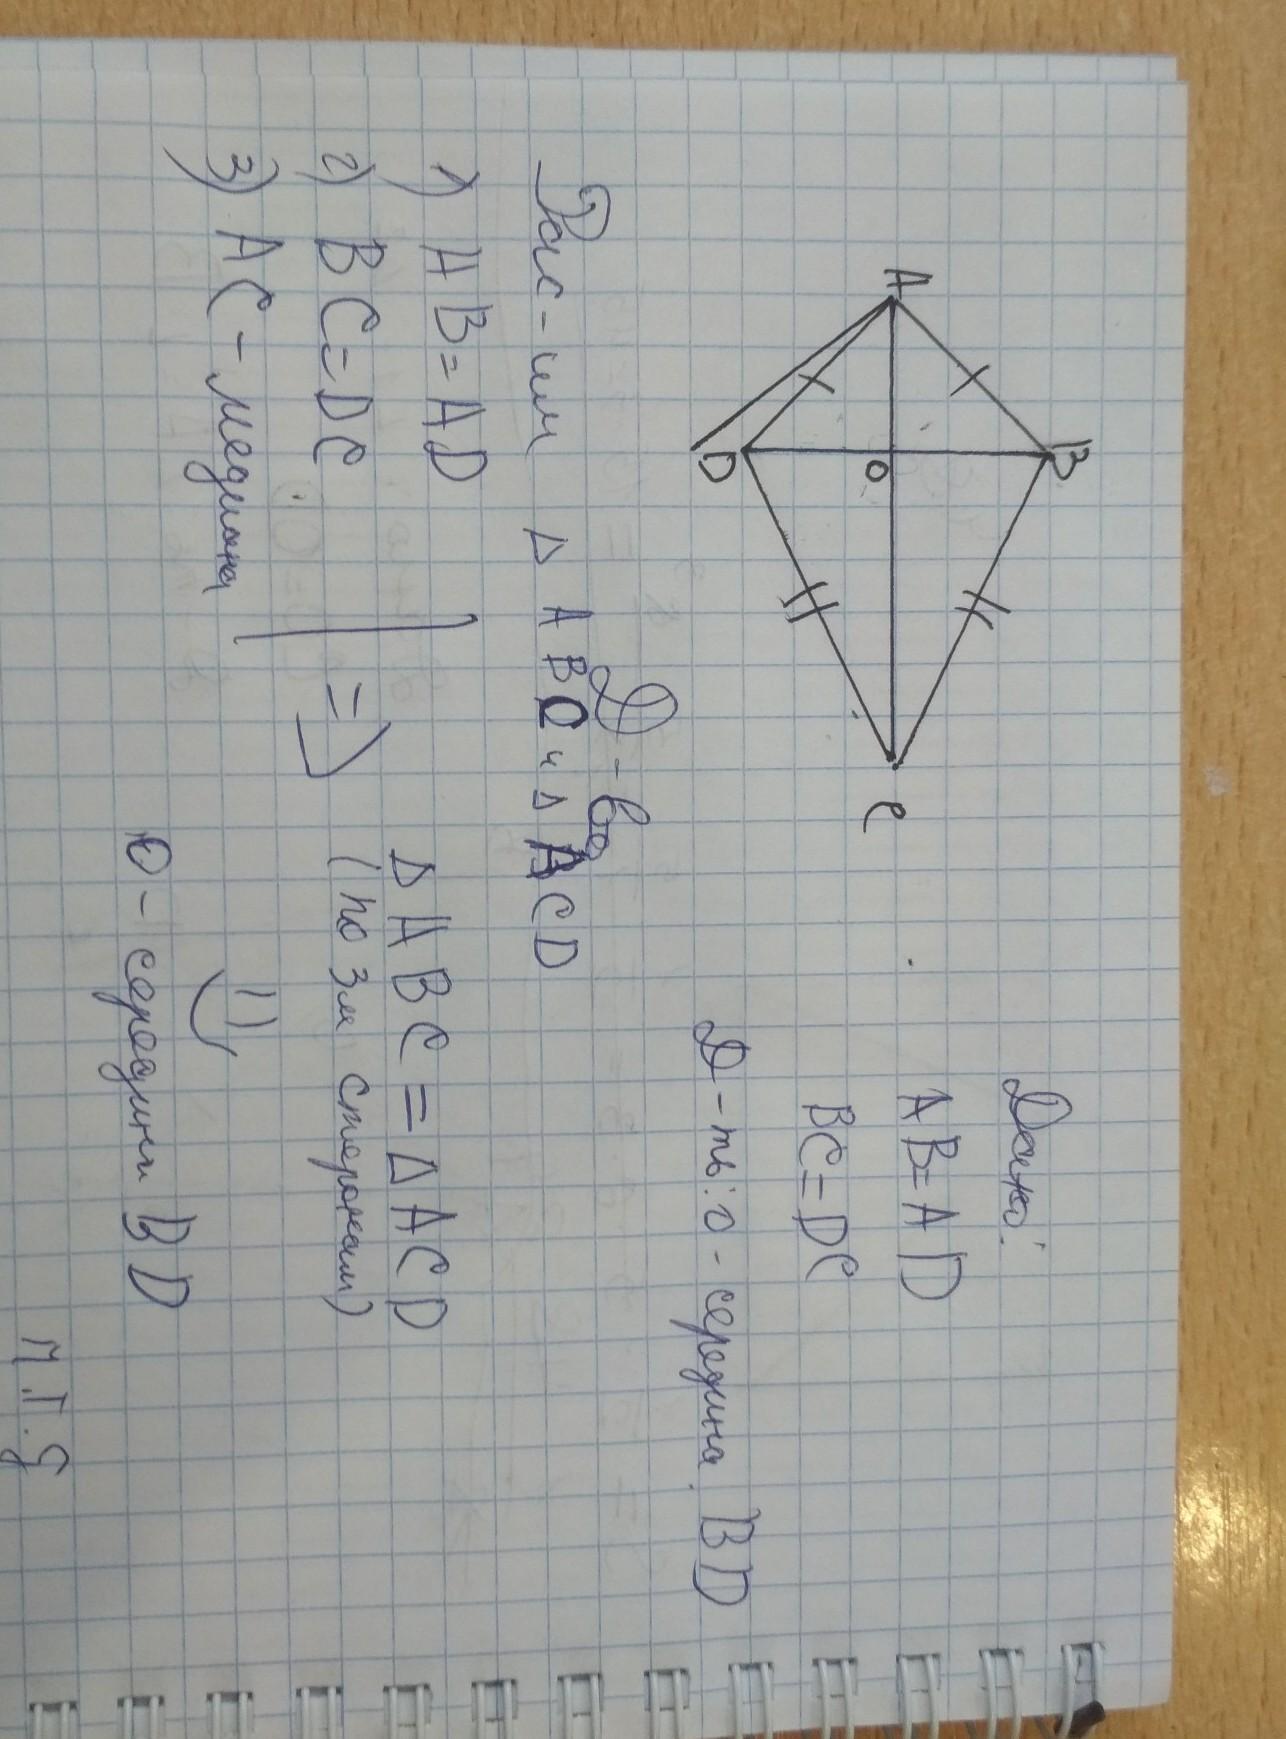 A
B
D
O
C
Дано:
AB=AD
BC=DC
Д-ть: O - середина BD
Д-во
Рас-им Δ ABC и Δ ACD
1) AB=AD
2) BC=DC
3) AC - медиана
=>
Δ ABC = Δ ACD
(по 3м сторонам)
O - середина BD
ч.т.д